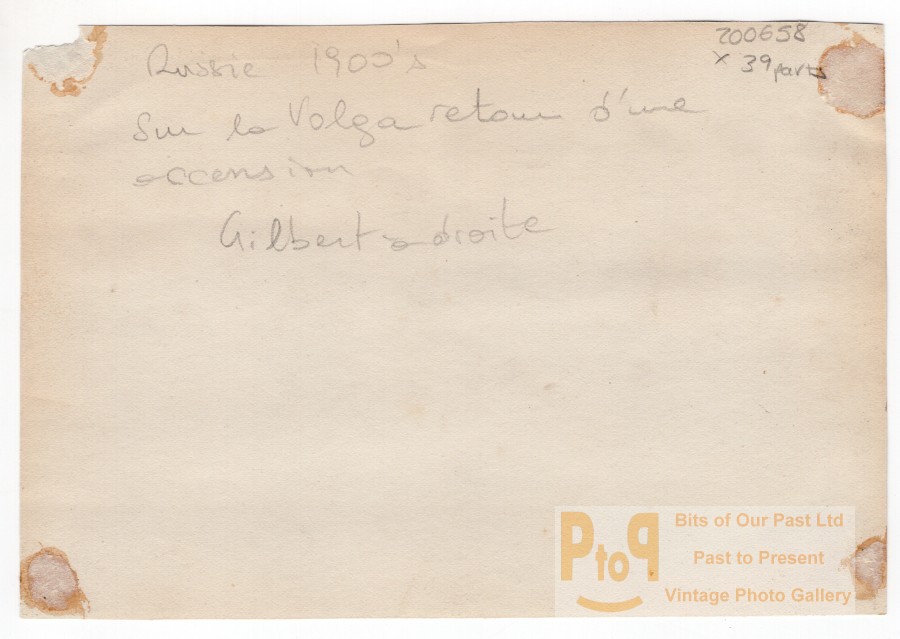 Russie 1900's
200658
x 39 parts
Sur la Volga retour d'une
accension
Gilbert a droite
PtoP
Bits of Our Past Ltd
Past to Present
Vintage Photo Gallery